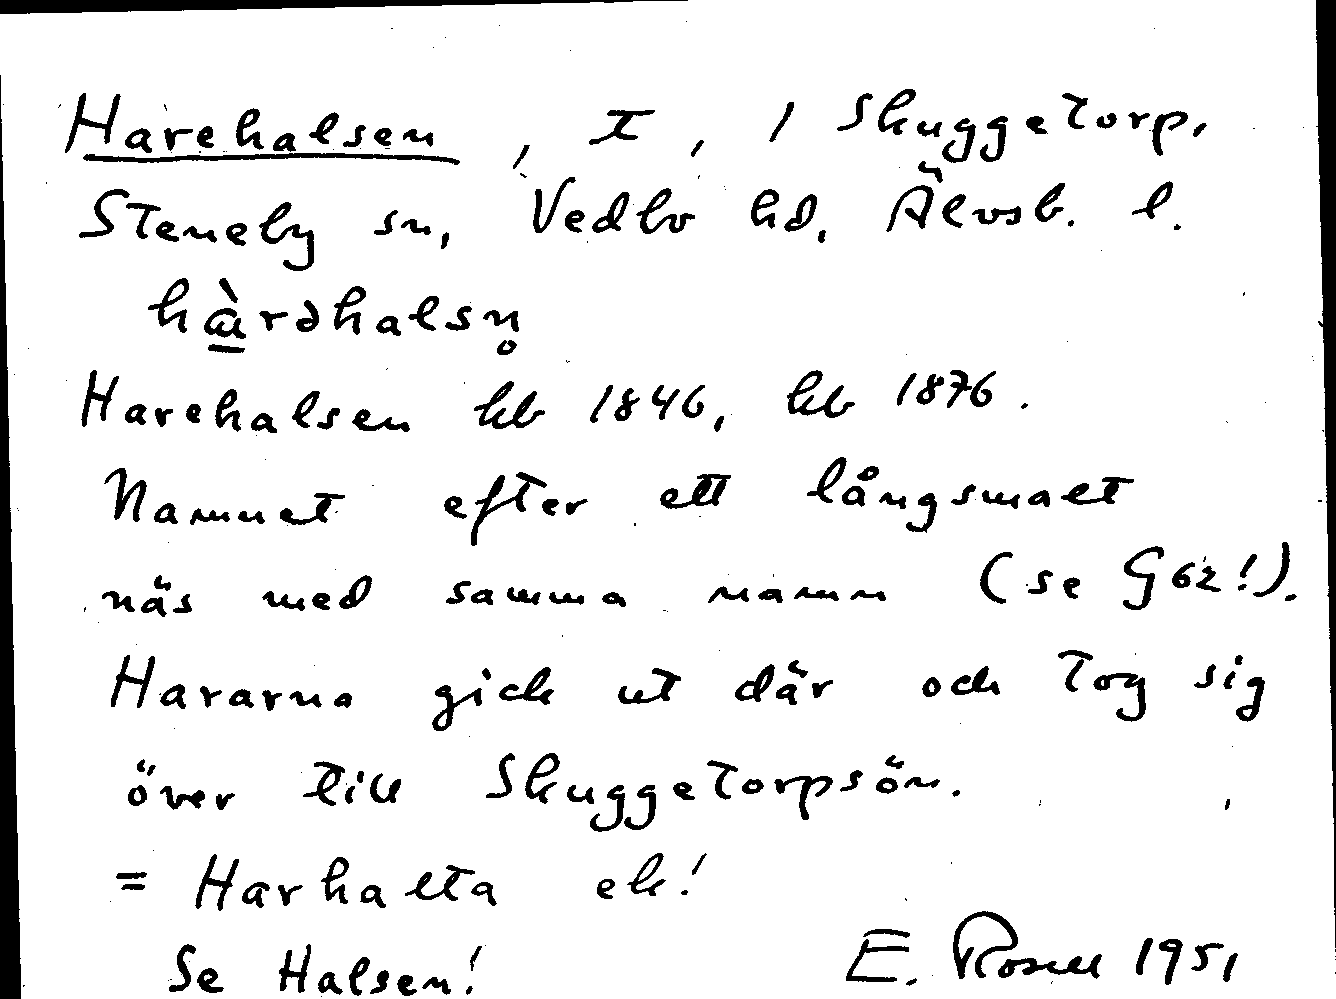 Harehalsen, t, 1 Skuggetorp.
Steneby sn, Vedbo hd, Älvsb. l.
hàrəhalsn̥
Harehalsen kb 1846, kb 1876.
Namnet efter ett långsmalt
näs med samma namn (se G62!).
Hararna gick ut där och tog sig
över till Skuggetorpsön.
= Harhalta ek!
Se Halsen!
E. Rosell 1951